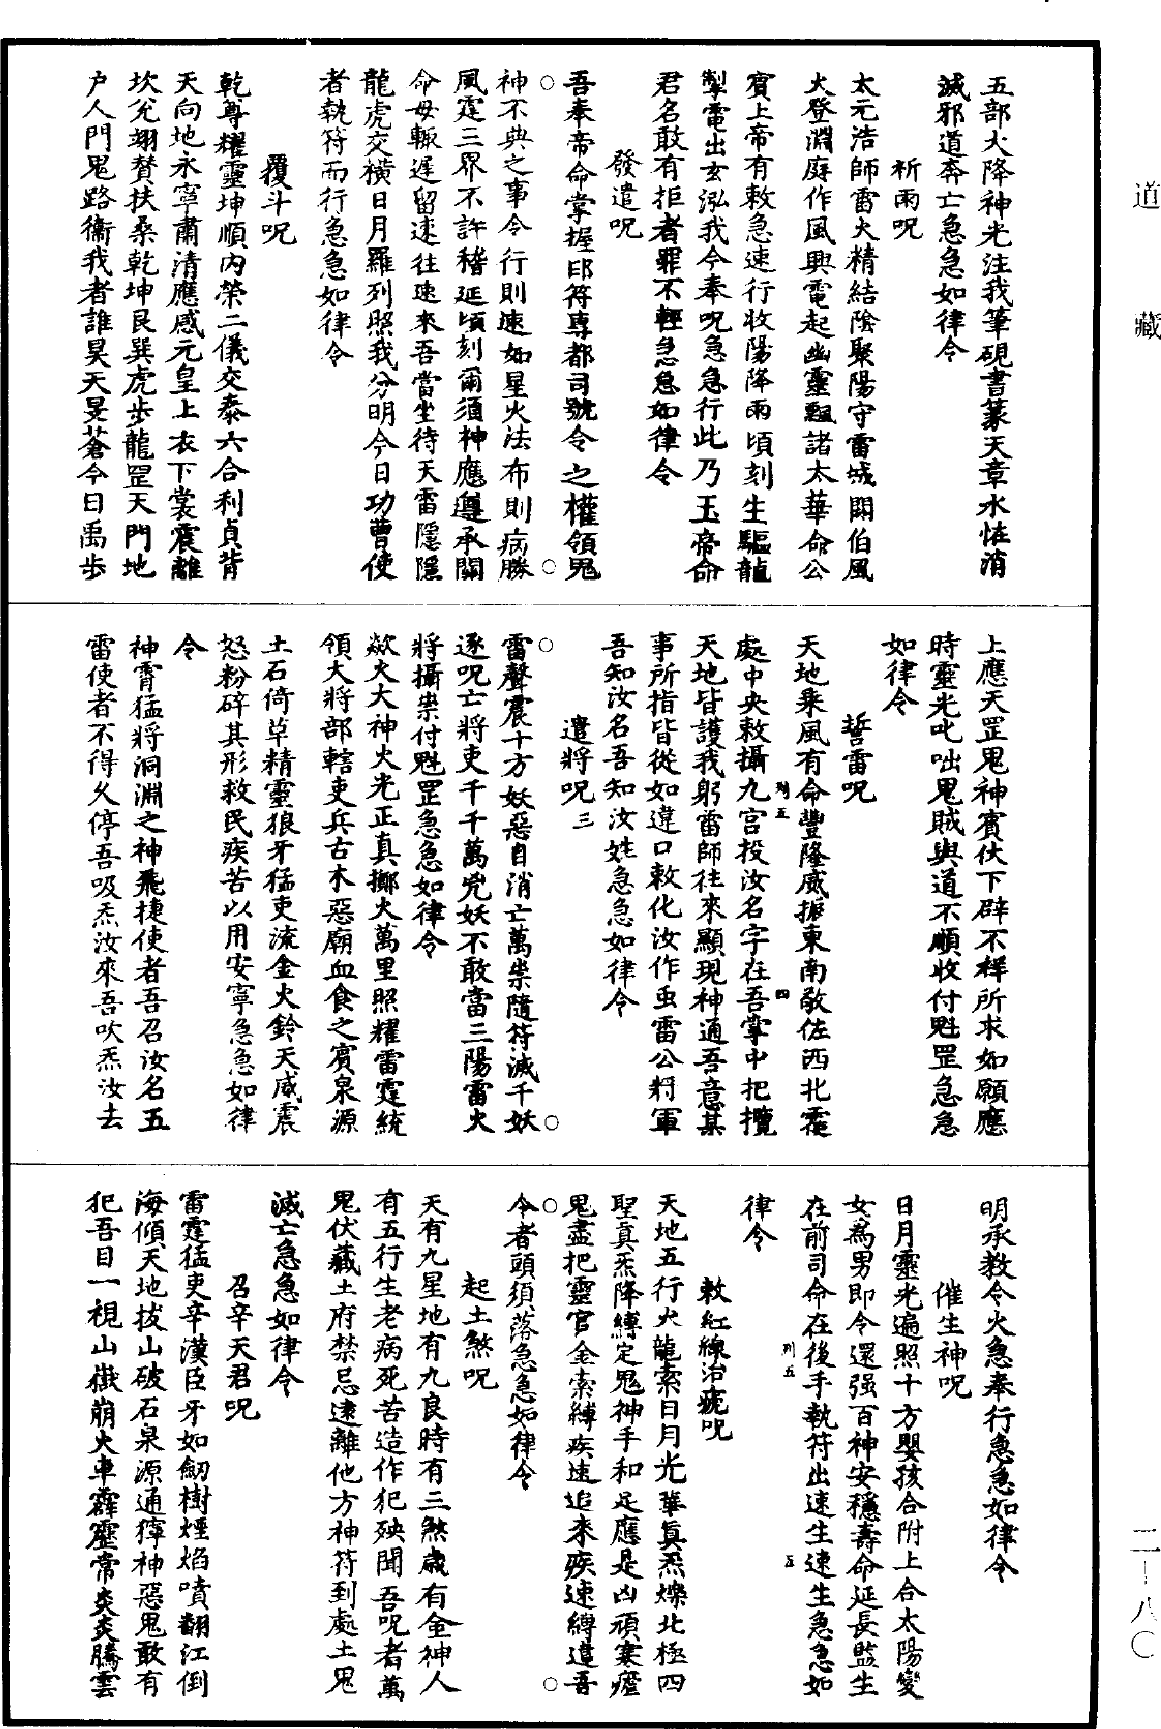 道藏
五部火降神光注我筆硯書篆天章水怪消
滅邪道奔亡急急如律令
祈雨呪
太元浩師雷火精結陰聚陽守雷城關伯風
火登淵庭作風興電起幽靈飄諸太華命公
賓上帝有敕急速行收陽降雨頃刻生驅龍
掣電出玄泓我今奉呪急急行此乃玉帝命
君名敢有拒者罪不輕急急如律令
發遣呪
吾奉帝命掌握印符專都司號令之權領鬼
神不典之事令行則速如星火法布則病勝
風霆三界不許稽延頃刻爾須神應遵承關
命毋輒遲留速往速來吾當坐待天雷隱隱
龍虎交橫日月羅列照我分明今日功曹使
者執符而行急急如律令
覆斗呪
乾尊耀靈坤順內榮二儀交泰六合利貞背
天向地永寧肅清應感元皇上衣下裳震離
坎兌翊贊扶桑乾坤艮巽虎步龍罡天門地
户人門鬼路衞我者誰昊天旻蒼今日禹步
上應天罡鬼神賓伏下辟不祥所求如願應
時靈光叱咄鬼賊與道不順收付魁罡急急
如律令
誓雷呪
天地乘風有命豐隆威振東南敬佐西北霆
處中央敕攝九宮投汝名字在吾掌中把攬
天地皆護我躬雷師往來顯現神通吾意某
事所指皆從如違口敕化汝作虫雷公將軍
吾知汝名吾知汝姓急急如律令
遣將呪三
雷聲震十方妖惡自消亡萬祟隨符滅千妖
逐呪亡將吏千千萬兇妖不敢當三陽雷火
將攝祟付魁罡急急如律令
欻火大神火光正真擲火萬里照耀雷霆統
領大將部轄吏兵古木惡廟血食之賓泉源
土石倚草精靈狼牙猛吏流金火鈴天威震
怒粉碎其形救民疾苦以用安寧急急如律
令
神霄猛將洞淵之神飛捷使者吾召汝名五
雷使者不得久停吾吸炁汝來吾吹炁汝去
明承教令火急奉行急急如律令
催生神呪
日月靈光遍照十方嬰孩合附上合太陽變
女為男即令還强百神安穩壽命延長監生
在前司命在後手執符出速生速生急急如
律令
敕紅線治瘧呪
天地五行火龍索日月光華真炁爍北極四
聖真炁降縛定鬼神手和足應是凶頑寒瘧
鬼盡把靈官金索縛疾速追來疾速縛違吾
令者頭須落急急如律令
起土煞呪
天有九星地有九良時有三煞歲有金神人
有五行生老病死苦造作犯殃聞吾呪者萬
鬼伏藏土府禁忌遠離他方神符到處土鬼
滅亡急急如律令
召辛天君呪
雷霆猛吏辛漢臣牙如劒樹煙焰噴翻江倒
海傾天地拔山破石泉源通獰神惡鬼敢有
犯吾目一視山嶽崩火車霹靂常炎炎騰雲